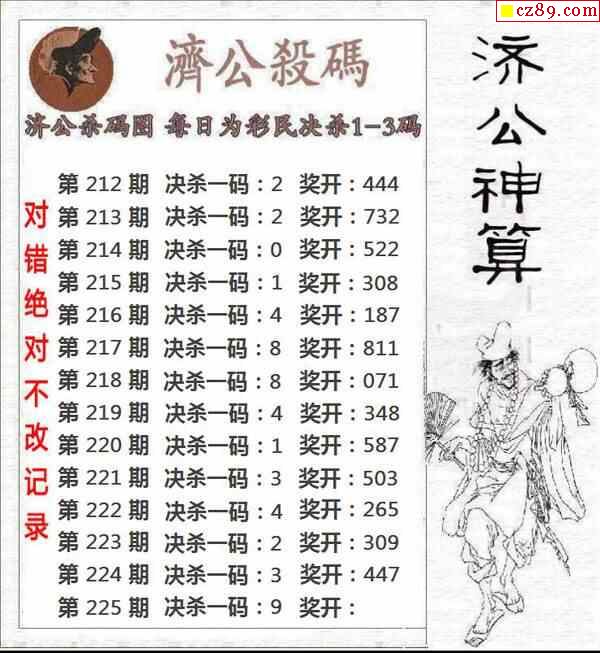 cz89.com
濟公殺碼
济公杀码图 每日为彩民决杀1-3码
第 212 期 决杀一码:2 奖开:444
第 213 期 决杀一码:2 奖开:732
第 214 期 决杀一码:0 奖开:522
第 215 期 决杀一码:1 奖开:308
第 216 期 决杀一码:4 奖开:187
第 217 期 决杀一码:8 奖开:811
第 218 期 决杀一码:8 奖开:071
第 219 期 决杀一码:4 奖开:348
第 220 期 决杀一码:1 奖开:587
第 221 期 决杀一码:3 奖开:503
第 222 期 决杀一码:4 奖开:265
第 223 期 决杀一码:2 奖开:309
第 224 期 决杀一码:3 奖开:447
第 225 期 决杀一码:9 奖开:
对错绝对不改记录
济公神算